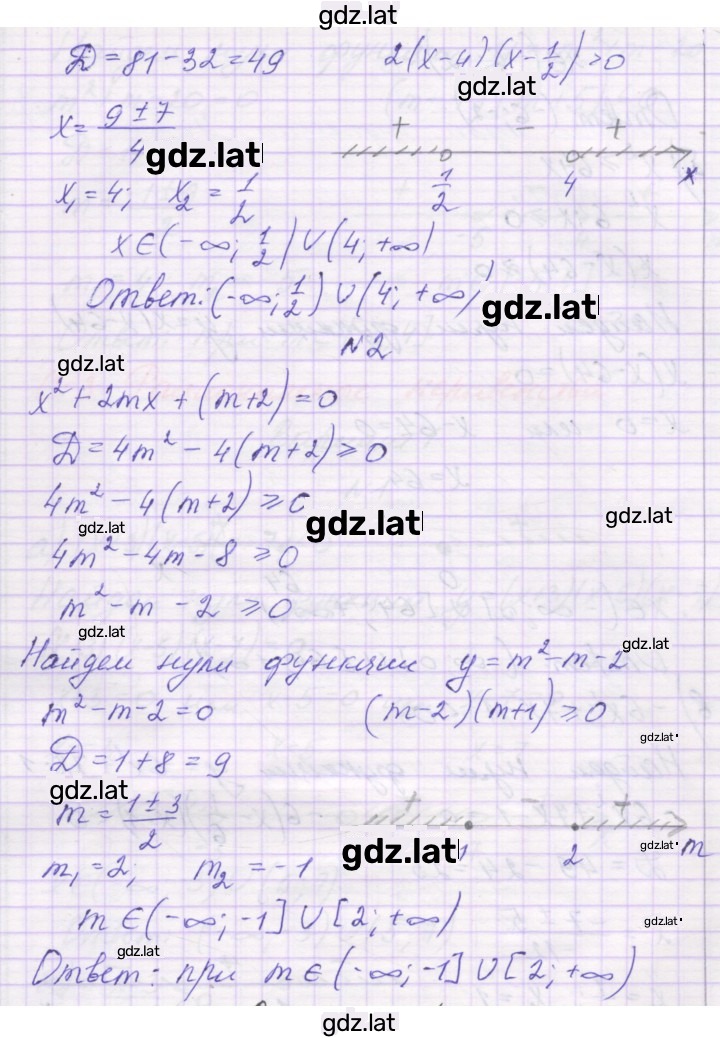 gdz.lat
D = 81 - 32 = 49    2(x-4)(x-1/2) > 0
gdz.lat
x = (9 ± 7)/4    + - +
gdz.lat
1/2    4    x
x₁ = 4;    x₂ = 1/2
x ∈ (-∞; 1/2) ∪ (4; +∞)
Ответ: (-∞; 1/2) ∪ (4; +∞)
gdz.lat
№2
gdz.lat
x² + 2mx + (m+2) = 0
D = 4m² - 4(m+2) ≥ 0
4m² - 4(m+2) ≥ 0
gdz.lat
gdz.lat
gdz.lat
4m² - 4m - 8 ≥ 0
m² - m - 2 ≥ 0
gdz.lat
gdz.lat
Найдем нули функции    y = m² - m - 2
m² - m - 2 = 0    (m-2)(m+1) ≥ 0
gdz.lat
D = 1 + 8 = 9
gdz.lat
m = (1 ± 3)/2    + +
gdz.lat
gdz.lat
2    m
m₁ = 2;    m₂ = -1
m ∈ (-∞; -1] ∪ [2; +∞)
gdz.lat
gdz.lat
Ответ: при m ∈ (-∞; -1] ∪ [2; +∞)
gdz.lat